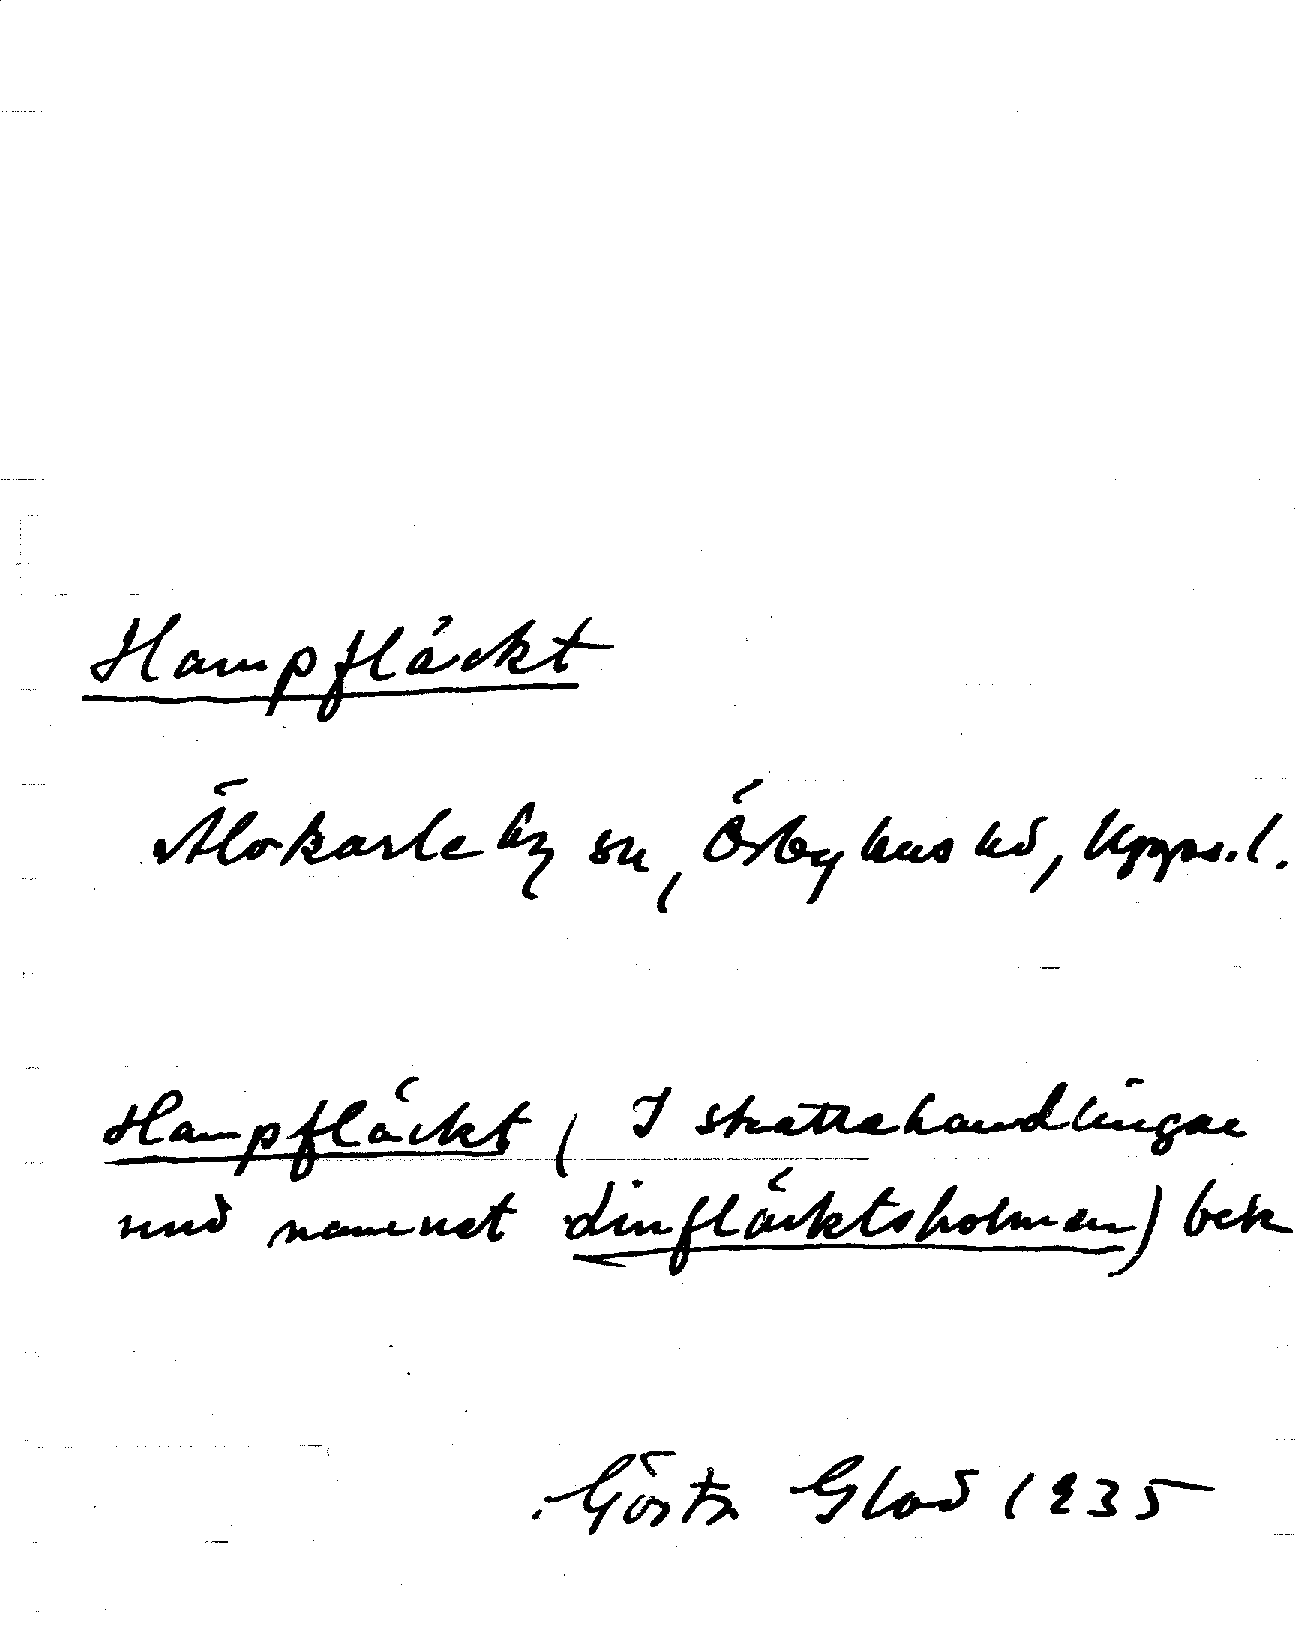 Hampfläckt
Älvkarleby sn, Örbyhus hd, Upps.l.
Hampfläckt (I skattehandlingar
und namnet Linfläcktsholmen)
Gösta Glad 1935